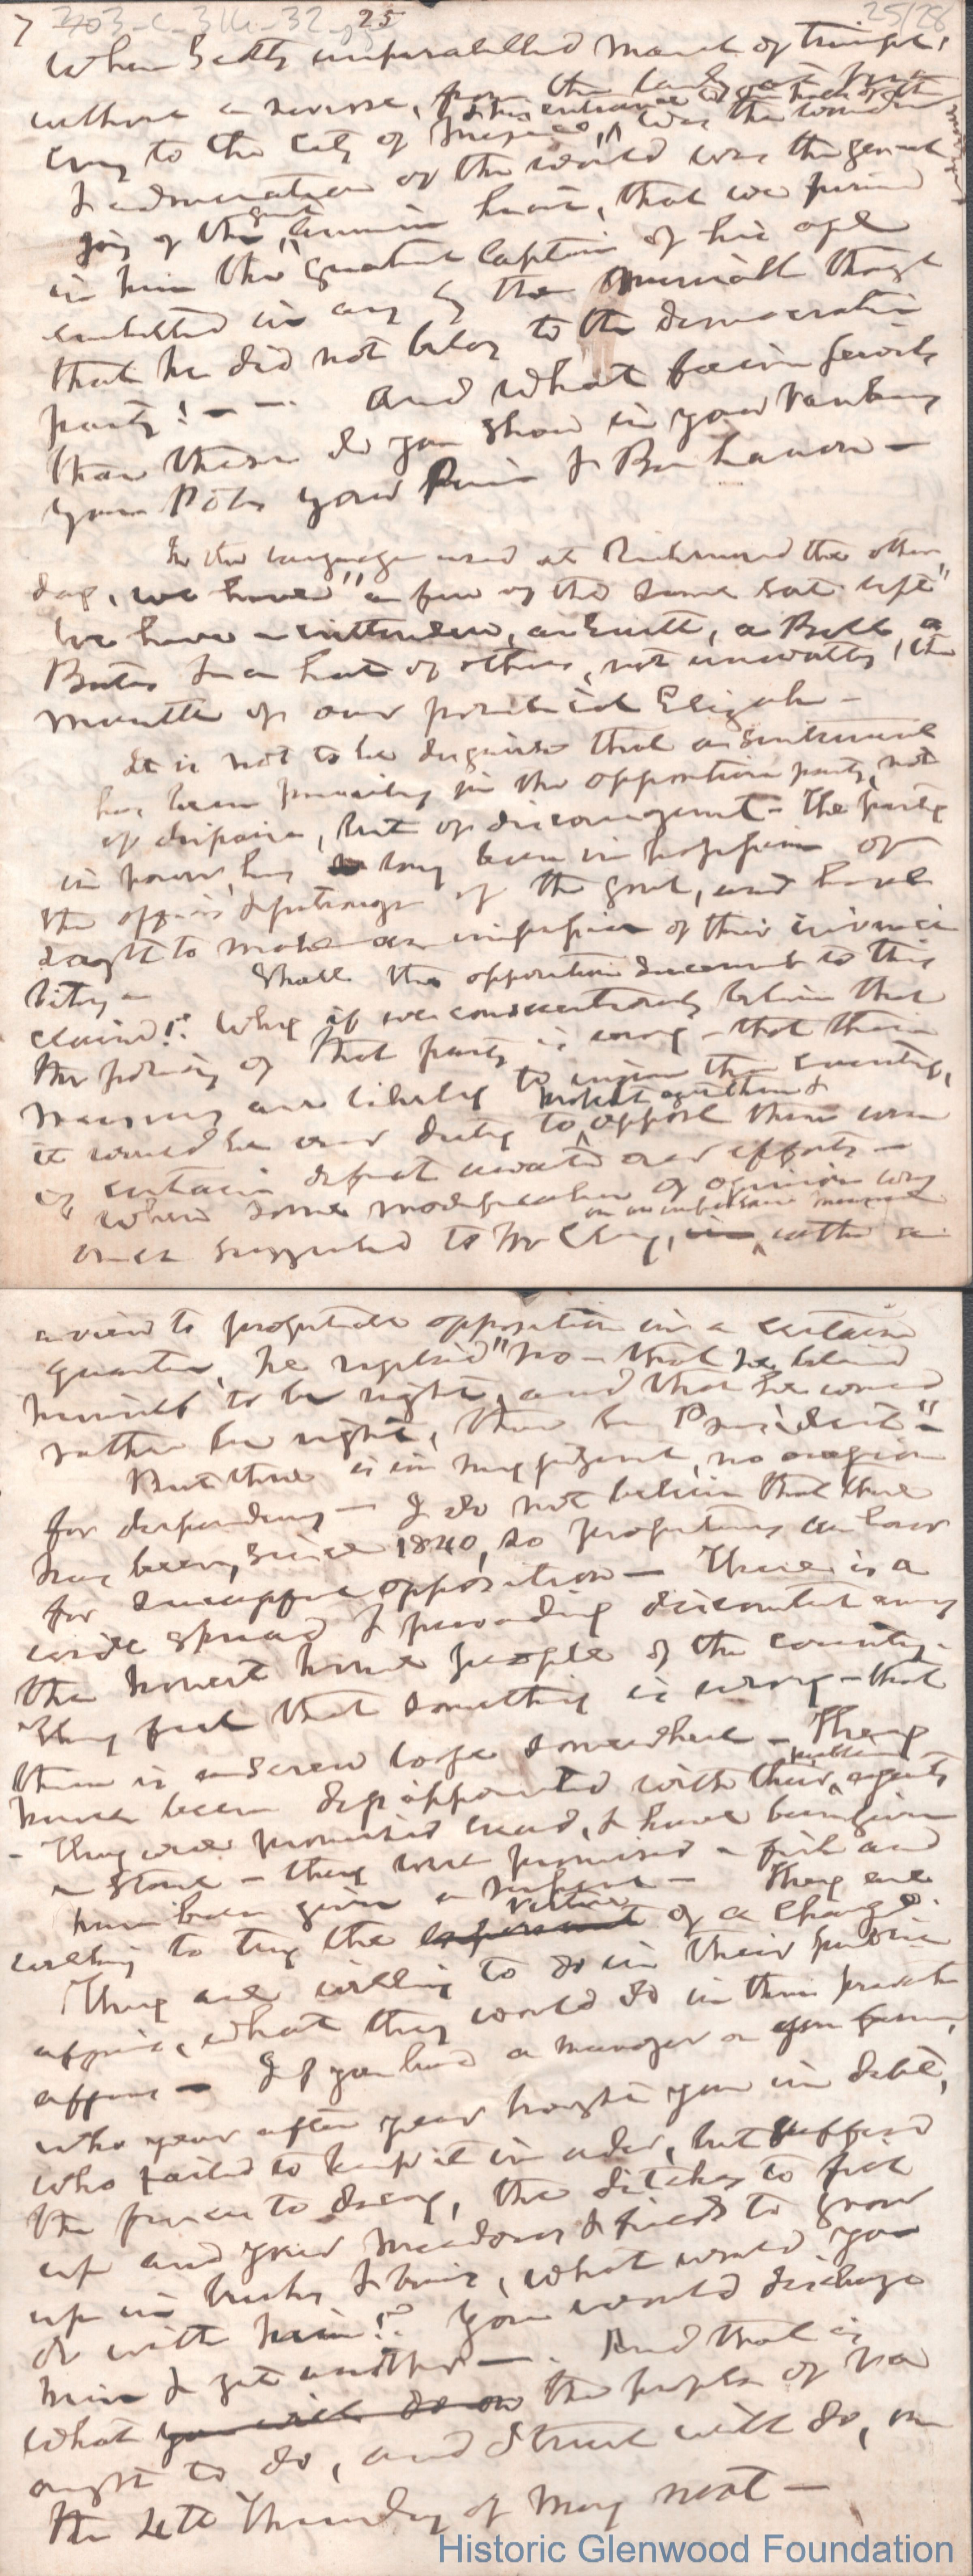 7 303-C-3 25
25/28
When Scotts unparalelled march of triumph,
without a reverse, from the landing at Vera
Cruz to the City of Mexico, his entrance was the wonder
& admiration of the world was the general
joy of this great that we
in him the greatest Captain of his age
embittered in any by the thought
that he did not belong to the democratic
party! — — And what
than these do you show in your Van Buren
your Polk your Pierce & Buchanan —
In the language used at Richmond the other
day, we have "a few of the same sort left"
We have a Crittenden, a Scott, a Bell, a
Bates & a host of others, not unworthy, the
mantle of our political Elijah —
It is not to be disguised that a sentiment
has been prevailing in the opposition party, not
of despair, but of discouragement — The party
in power, has so long been in possession of
the offices & patronage of the govt, and have
sought to make an impression of their invinci
bility — Shall the opposition succumb to this
claim!? Why if we conscientiously believe that
the policy of that party is wrong — that their
measures are likely to injure the country,
it would be our duty to protest against them & oppose them even
if certain defeat await our efforts —
When some modification of opinion was
once suggested to Mr Clay, on an important measure with a
a view to propitiate opposition in a certain
quarter, he replied "No — that he believed
himself to be right, and that he would
rather be right, than be President" —
But there is in my judgment, no occasion
for despondency — I do not believe that there
has been, since 1840, so propitious an hour
for successful opposition — There is a
wide spread & pervading discontent among
the honest people of the country.
They feel that something is wrong — that
there is a screw loose somewhere — They
have been disappointed with their public agents
— They were promised bread, & have been given
a stone — they were promised a fish and
have been given a serpent — They are
willing to try the experiment virtue of a change.
They are willing to do in their public
affairs, what they would do in their private
affairs — If you had a manager on your farm,
who year after year brought you in debt,
who failed to keep it in order, but suffered
the fences to decay, the ditches to fill
up and your meadows & fields to grow
up in bushes & briars, what would you
do with him!? You would discharge
him & get another —. And that is
what you will do on the people of Va
ought to do, and I trust will do, on
the 4th Thursday of May next —
Historic Glenwood Foundation